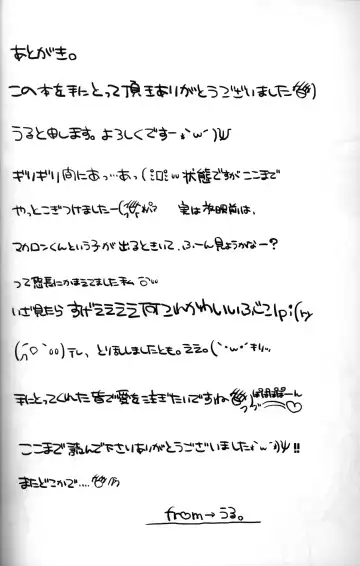 あとがき。
この本を手にとって頂きありがとうございました
うると申します。よろしくですー(`・ω・´)ψ
ギリギリ間にあっ…あっ 状態ですがここまで
やっとこぎつけましたー 実は 前は、
マカロンくんという子が出るときいて、ふーん見ようかなー?
って 長にかまえてました私
いざ見たら すげええええ何コレかわいいふごlpi(ry
テレ、とり乱しましたとも。ええ。(`・ω・´キリッ
手にとってくれた皆で愛を注ぎたいですね
ここまで読んで下さいありがとうございました(`・ω・´)ψ!!
またどこかで....
from→うる。